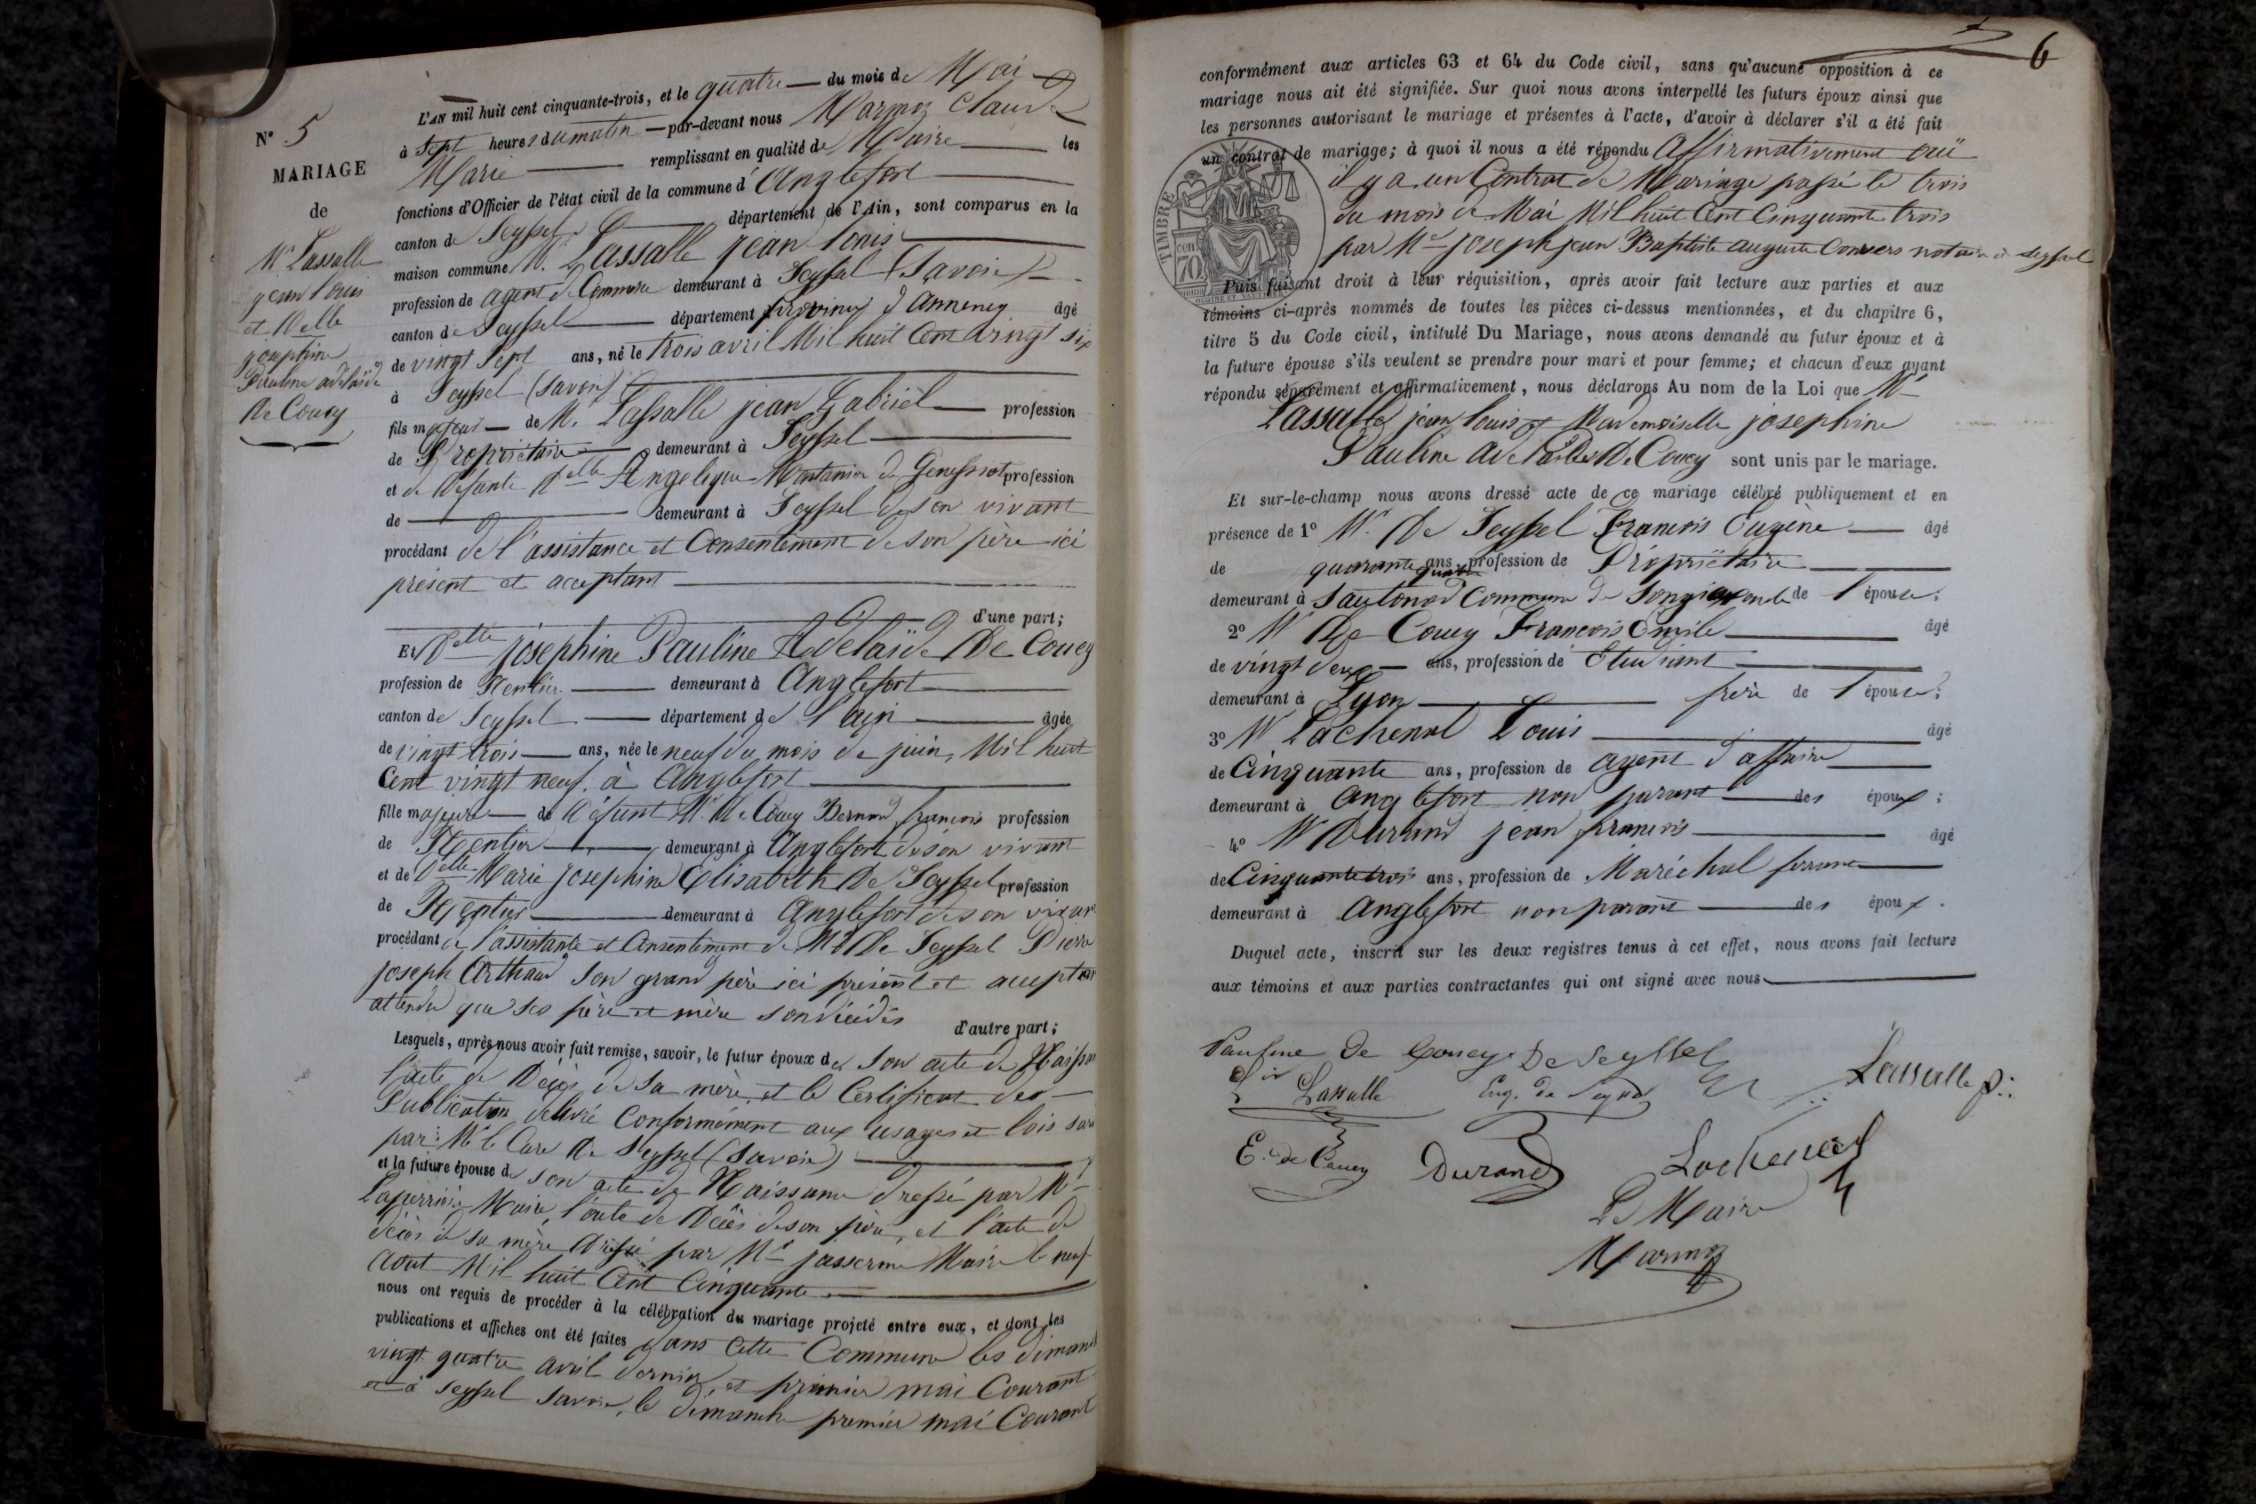 N° 5
MARIAGE
de
Mr Lassalle
jean Louis
et Delle
josephine
Pauline adelaïde
De Coucy
L'AN mil huit cent cinquante-trois, et le quatre du mois de Mai
à sept heures du matin par-devant nous Marmoz Claude
Marie remplissant en qualité de Maire les
fonctions d'Officier de l'état civil de la commune d'Anglefort
canton de Seyssel département de l'Ain, sont comparus en la
maison commune M. Lassalle jean Louis
profession de agent de Commerce demeurant à Seyssel (Savoie)
canton de Seyssel département province d'annency âgé
de vingt sept ans, né le trois avril Mil huit Cent vingt six
à Seyssel (Savoie)
fils majeur de M. Lassalle jean Gabriel profession
de Propriétaire demeurant à Seyssel
et de Défunte Delle Angelique Montanier de Genissiat profession
de demeurant à Seyssel de son vivant
procédant de l'assistance et Consentement de son père ici
présent et acceptant
d'une part;
Et Delle josephine Pauline Adelaïde De Coucy
profession de Rentier demeurant à Anglefort
canton de Seyssel département de l'ain âgée
de vingt trois ans, née le neuf du mois de juin Mil huit
Cent vingt neuf à Anglefort
fille majeure de Défunt Mr De Coucy Bernard françois profession
de Rentier demeurant à Anglefort de son vivant
et de Delle Marie josephine Elisabeth De Seyssel profession
de Rentier demeurant à Anglefort de son vivant
procédant de l'assistante et Consentement de Mr De Seyssel Pierre
joseph Arthaud son grand père ici présent et acceptant
attendu que ses père et mère son décédés
d'autre part;
Lesquels, après nous avoir fait remise, savoir, le futur époux de son acte de Naissan
l'acte de Décès de sa mère et le Certificat des
Publication délivré Conformément aux usages et lois
par Mr le Curé De Seyssel (Savoie)
et la future épouse de son acte de Naissance dressé par Mr
Maire, l'acte de Décès de son père, et l'acte de
décès de sa mère dressé par Mr Maire le neuf
Aout Mil huit Cent Cinquante
nous ont requis de procéder à la célébration du mariage projeté entre eux, et dont les
publications et affiches ont été faites dans cette Commune les dimanch
vingt quatre avril dernier et premier mai Courant
et à Seyssel Savoie, le dimanche premier mai Courant
6
conformément aux articles 63 et 64 du Code civil, sans qu'aucune opposition à ce
mariage nous ait été signifiée. Sur quoi nous avons interpellé les futurs époux ainsi que
les personnes autorisant le mariage et présentes à l'acte, d'avoir à déclarer s'il a été fait
un contrat de mariage; à quoi il nous a été répondu Affirmativement ouï
TIMBRE
70
il y a un Contrat de Mariage passé le trois
du mois de Mai Mil huit Cent Cinquante trois
par Me joseph jean Baptiste auguste Convers notaire à Seyssel
Puis faisant droit à leur réquisition, après avoir fait lecture aux parties et aux
témoins ci-après nommés de toutes les pièces ci-dessus mentionnées, et du chapitre 6,
titre 5 du Code civil, intitulé Du Mariage, nous avons demandé au futur époux et à
la future épouse s'ils veulent se prendre pour mari et pour femme; et chacun d'eux ayant
répondu séparément et affirmativement, nous déclarons Au nom de la Loi que Mr
Lassalle jean Louis et Mademoiselle josephine
Pauline De Coucy sont unis par le mariage.
Et sur-le-champ nous avons dressé acte de ce mariage célébré publiquement et en
présence de 1° Mr De Seyssel François Eugène âgé
de quarante quatre ans profession de Propriétaire
demeurant à Sautonod Commune de Songieu oncle de l'épouse;
2° Mr De Coucy François Emile âgé
de vingt deux ans, profession de Etudiant
demeurant à Lyon frère de l'épouse;
3° Mr Lachenal Louis âgé
de Cinquante ans, profession de agent d'affaire
demeurant à Anglefort non parent des époux;
4° Mr Durand jean françois âgé
de Cinquante trois ans, profession de Maréchal ferrant
demeurant à Anglefort non parant des époux.
Duquel acte, inscrit sur les deux registres tenus à cet effet, nous avons fait lecture
aux témoins et aux parties contractantes qui ont signé avec nous
Pauline de Coucy De Seyssel
Lassalle Eug. de Seyssel Lassalle
E. de Coucy Durand Lachenal
Le Maire
Marmoz